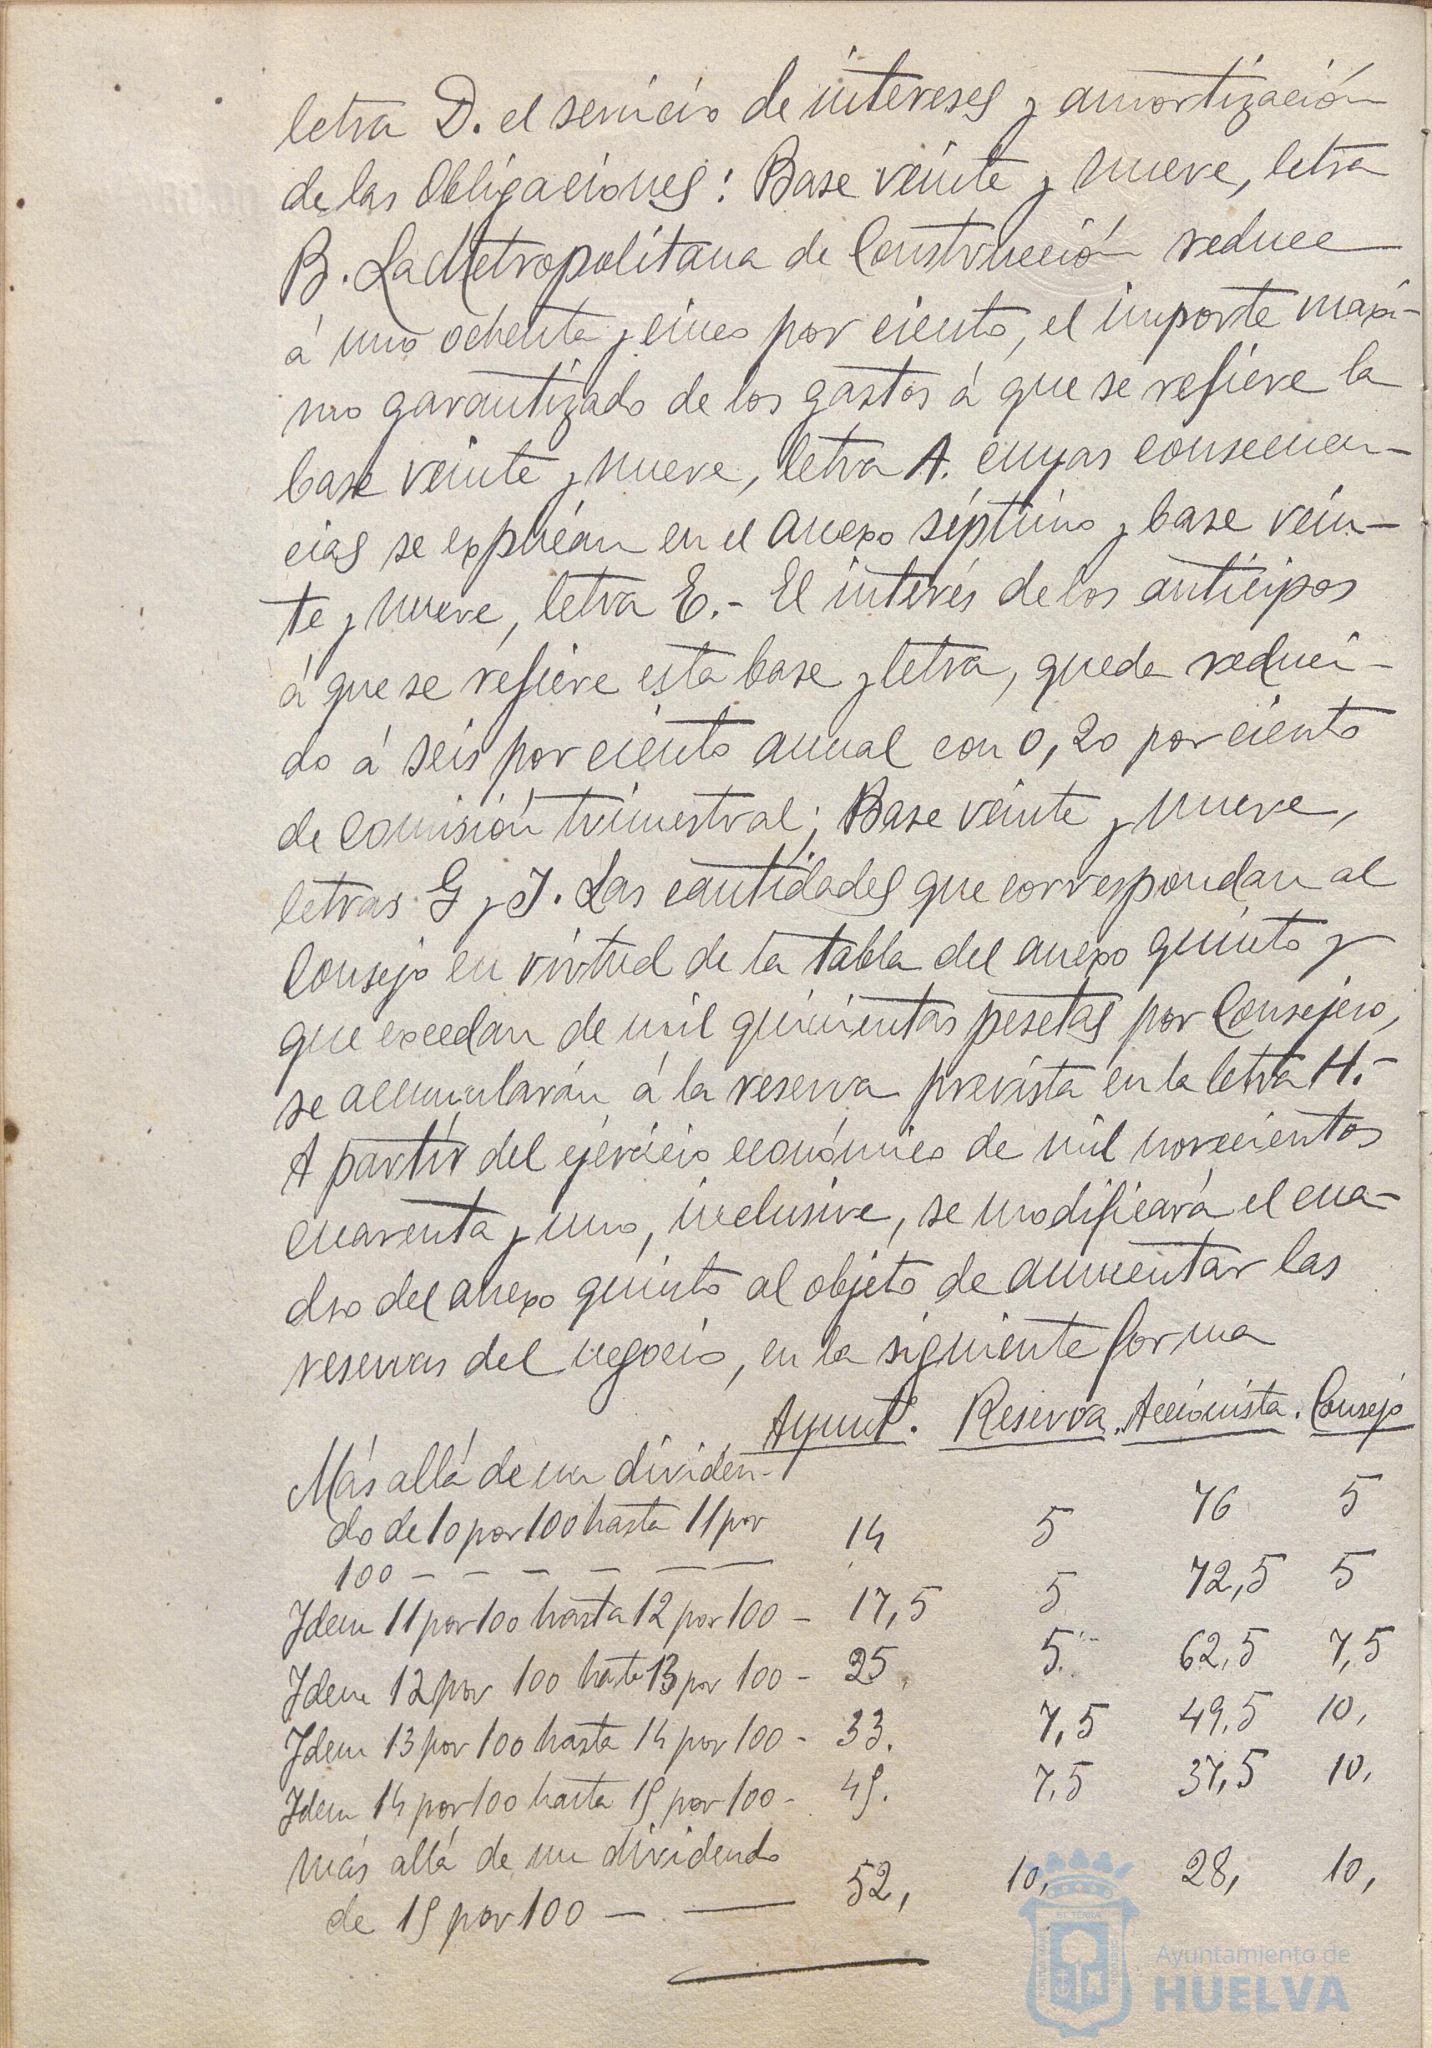 letra D. el servicio de intereses y amortización
de las Obligaciones: Base veinte y nueve, letra
B. La Metropolitana de Construcción reduce
á uno ochenta y cinco por ciento, el importe maxi-
mo garantizado de los gastos á que se refiere la
base veinte y nueve, letra A. cuyas consecuen-
cias se expresan en el anexo séptimo y base vein-
te y nueve, letra E.- El interés de los anticipos
á que se refiere esta base y letra, queda reduci-
do á seis por ciento anual con 0,20 por ciento
de comisión trimestral; Base veinte y nueve,
letras G y J. Las cantidades que correspondan al
Consejo en virtud de la tabla del anexo quinto y
que excedan de mil quinientas pesetas por Consejero,
se acumularán á la reserva prevista en la letra H.-
A partir del ejercicio económico de mil novecientos
cuarenta y uno, inclusive, se modificará el cua-
dro del anexo quinto al objeto de aumentar las
reservas del negocio, en la siguiente forma
Ayuntº. Reserva. Accionista. Consejo
Más allá de un dividen-
do de 10 por 100 hasta 11 por
100 - - - - - 14 5 76 5
Idem 11 por 100 hasta 12 por 100 - 17,5 5 72,5 5
Idem 12 por 100 hata 13 por 100 - 25 5. 62,5 7,5
Idem 13 por 100 hasta 14 por 100 - 33. 7,5 49,5 10,
Idem 14 por 100 hasta 15 por 100 - 45. 7,5 37,5 10,
más allá de un dividendo
de 15 por 100 - - 52, 10, 28, 10,
Ayuntamiento de
HUELVA